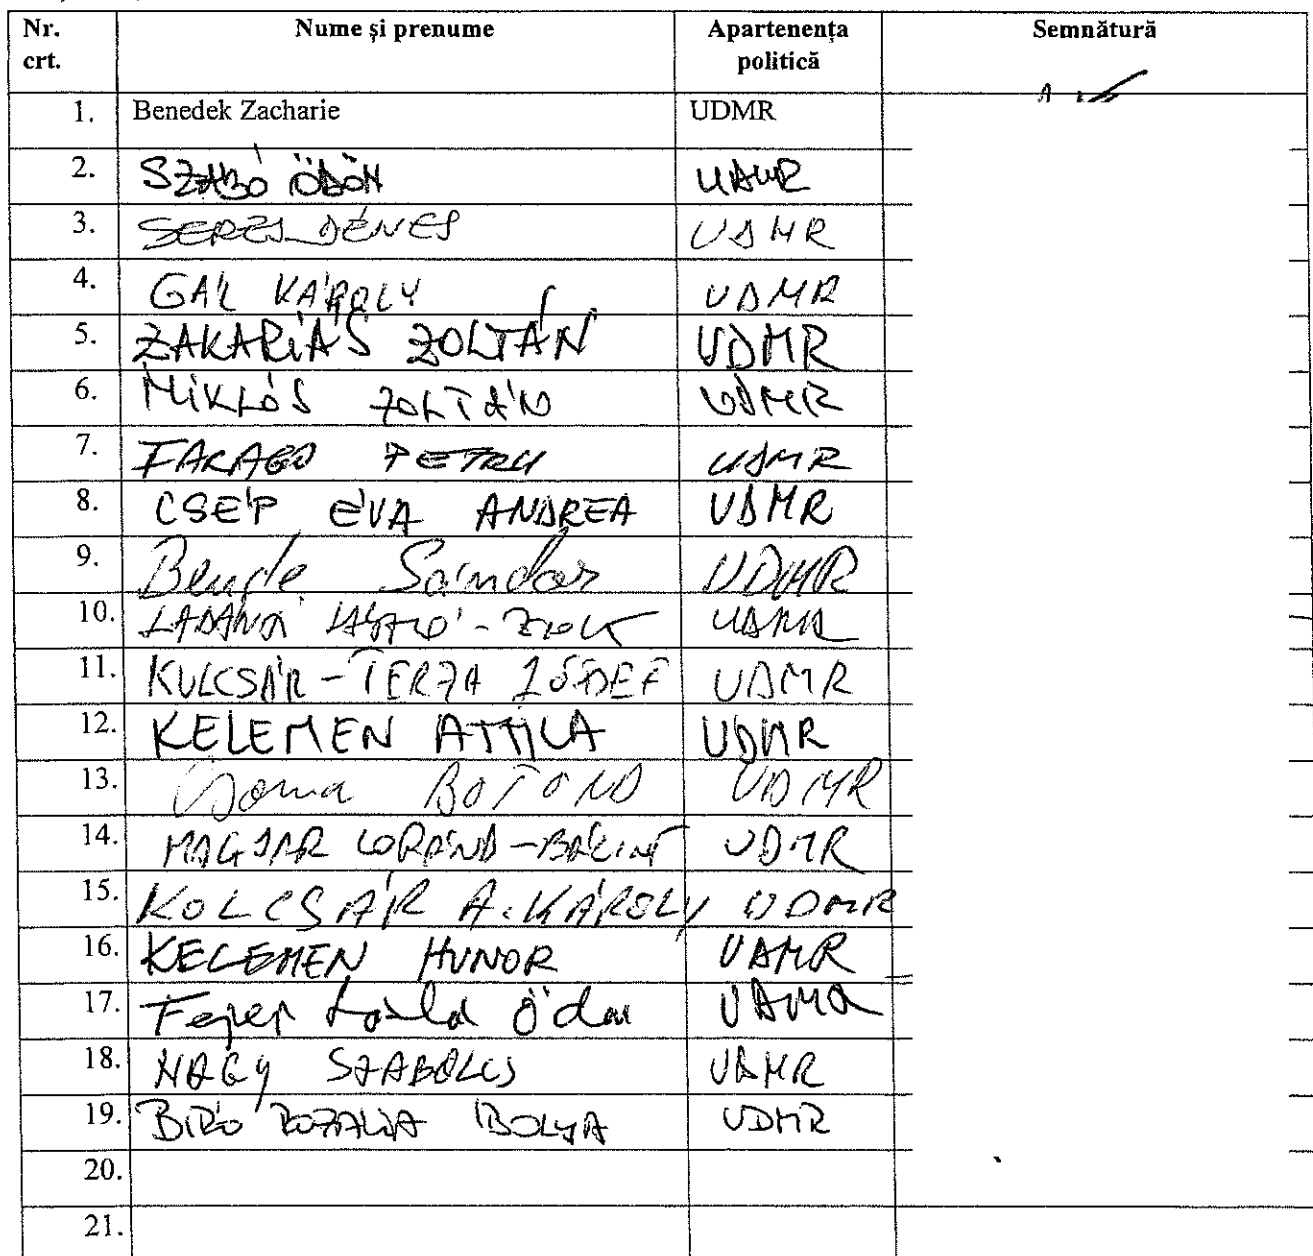 Nr. crt. Nume și prenume Apartenența politică Semnătură
1. Benedek Zacharie UDMR
2. SZABÓ ÖDÖN UDMR
3. SERES DÉNES UDMR
4. GÁL KÁROLY UDMR
5. ZAKARIÁS ZOLTÁN UDMR
6. MIKLÓS ZOLTÁN UDMR
7. FARAGO PETRU UDMR
8. CSÉP ÉVA ANDREA UDMR
9. Bende Sándor UDMR
10. LADÁNYI LÁSZLÓ-ZSOLT UDMR
11. KULCSÁR-TERZA JÓZSEF UDMR
12. KELEMEN ATTILA UDMR
13. Csoma BOTOND UDMR
14. MAGYAR LORÁND-BÁLINT UDMR
15. KOLCSÁR A. KÁROLY UDMR
16. KELEMEN HUNOR UDMR
17. Fejér László Ödön UDMR
18. NAGY SZABOLCS UDMR
19. BIRÓ ROZALIA IBOLYA UDMR
20.
21.